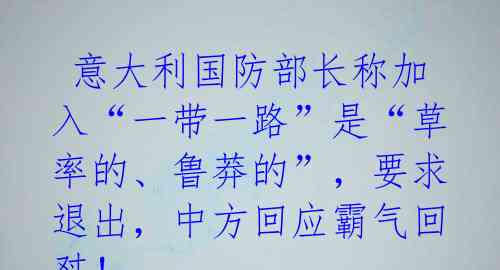 意大利国防部长称加
入“一带一路”是“草
率的、鲁莽的”，要求
退出，中方回应霸气回
对！